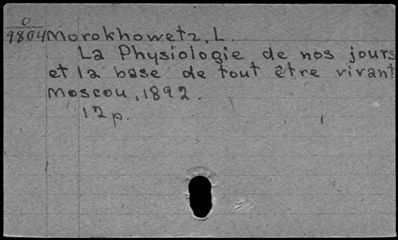 O
9804
Morokhowetz, L.
La Physiologie de nos jours
et la base de tout être vivant
Moscou, 1892.
12p.